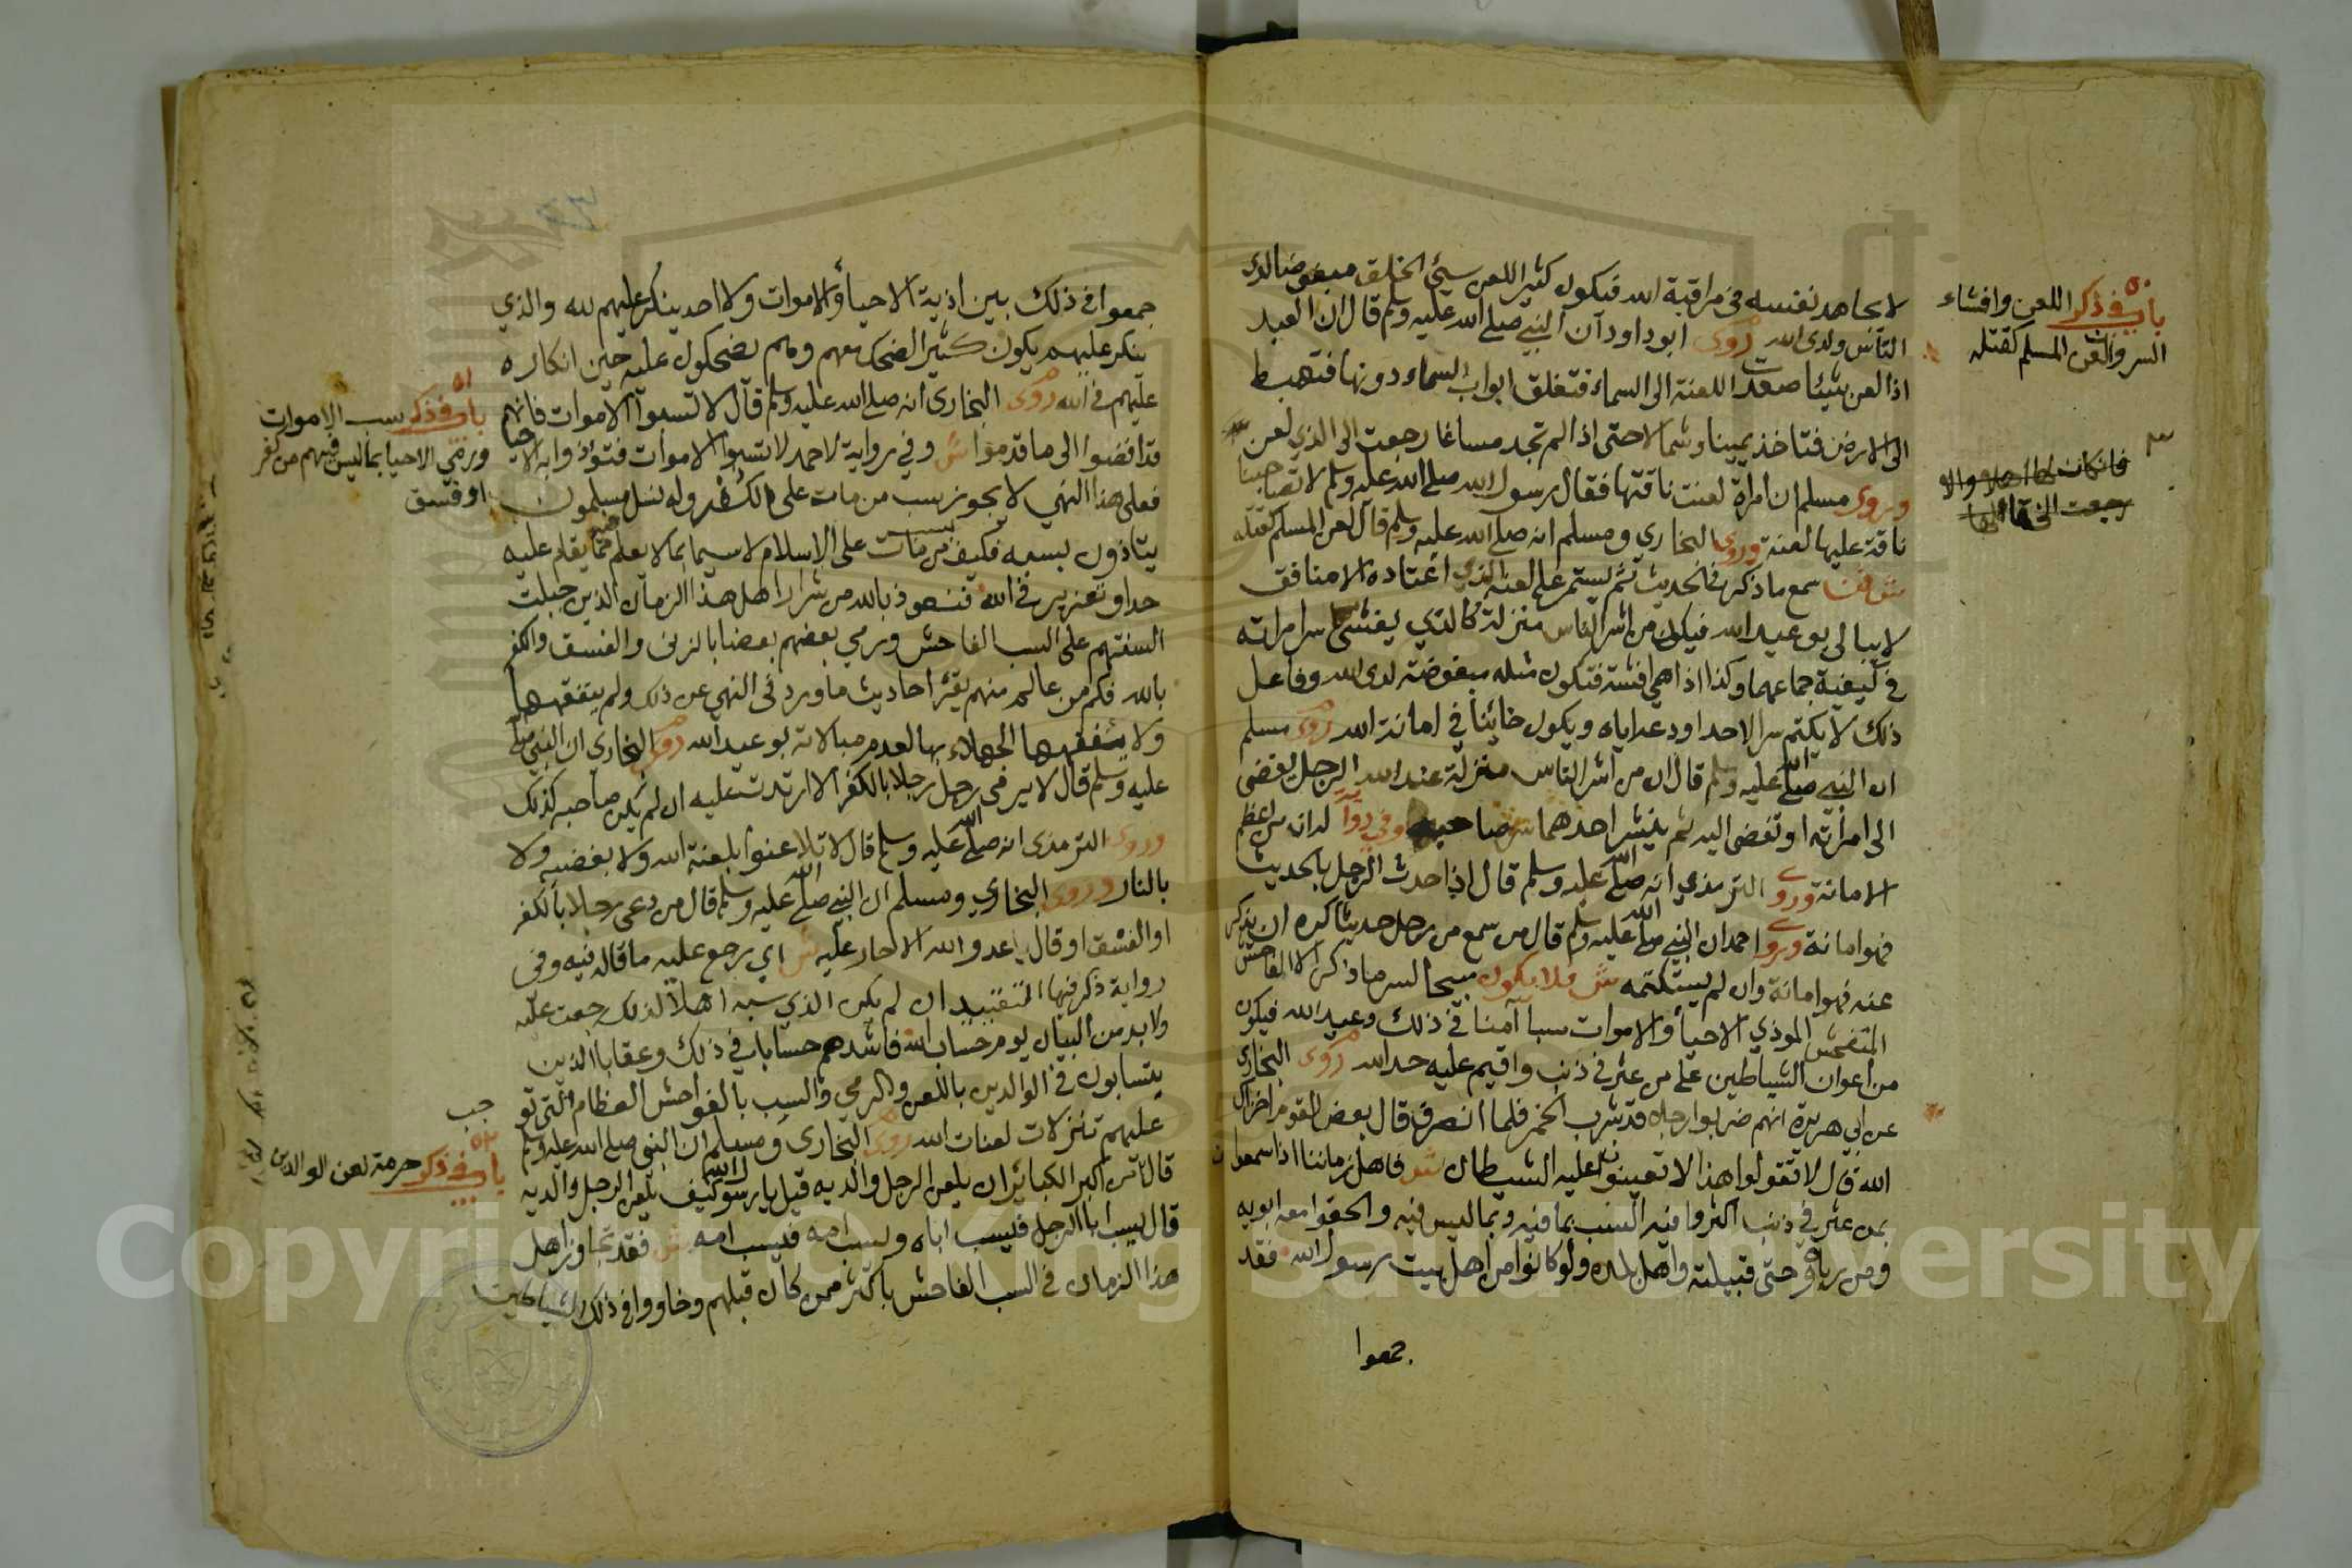 لا يجاهد نفسه في مراقبة الله فيكون كثير اللعن سيئ الخلق مبغوضا لدى
الناس ولدى الله روى ابو داود ان النبي صلى الله عليه وسلم قال ان العبد
اذا لعن شيئا صعدت اللعنة الى السماء فتغلق ابواب السماء دونها فتهبط
الى الارض فتاخذ يمينا وشمالا حتى اذا لم تجد مساغا رجعت الى الذي لعن
وروى مسلم ان امراة لعنت ناقتها فقال رسول الله صلى الله عليه وسلم لا تصاحبنا
ناقة عليها لعنة وروى البخاري ومسلم انه صلى الله عليه وسلم قال لعن المسلم كقتله
ش فمن سمع ما ذكر في الحديث ثم يستمر على لعنه الذي اعتاده الا منافق
لا يبالي بوعيد الله فيكون من اشر الناس منزلة كالذي يفشي سر امراته
في كيفية جماعهما وكذا اذا هي افشته فتكون مثله مبغوضة لدى الله وفاعل
ذلك لا يكتم سرا لاحد اودعه اياه ويكون خائنا في امانة الله روى مسلم
ان النبي صلى الله عليه وسلم قال ان من اشر الناس منزلة عند الله الرجل يفضي
الى امراته او تفضي اليه ثم ينشر احدهما سر صاحبه وفي رواية له ان من اعظم
الامانة وروى الترمذي انه صلى الله عليه وسلم قال اذا حدث الرجل بالحديث
فهو امانة وروى احمد ان النبي صلى الله عليه وسلم قال من سمع من رجل حديثا كره ان يذكر
عنه فهو امانة وان لم يستكتمه ش فلا يكون مبيحا لسر ما ذكر الا الفاحش
المتفحش الموذي الاحياء والاموات سبا آمنا في ذلك وعيد الله فيكون
من اعوان الشياطين على من عثر في ذنب واقيم عليه حد الله روى البخاري
عن ابي هريرة انهم ضربوا رجلا قد شرب الخمر فلما انصرف قال بعض القوم اخزاك
الله قال لا تقولوا هذا لا تعينوا عليه الشيطان ش فاهل زماننا اذا سمعوا
بمن عثر في ذنب اكثروا فيه السب بما فيه وبما ليس فيه والحقوا معه ابويه
ومن رباه حتى قبيلته واهل بلده ولو كانوا من اهل بيت رسول الله فقد
جمعوا
باب في ذكر اللعن وافشاء
السر وان لعن المسلم كقتله
جمعوا في ذلك بين اذية الاحياء والاموات ولا احد ينكر عليهم لله والذي
ينكر عليهم يكون كثير الضحك معهم وهم يضحكون عليه حين انكاره
عليهم في الله روى البخاري انه صلى الله عليه وسلم قال لا تسبوا الاموات فانهم
قد افضوا الى ما قدموا ش وفي رواية لاحمد لا تسبوا الاموات فتؤذوا به الاحيا
فعلى هذا النهي لا يجوز سب من مات على الكفر وله نسل مسلمون
يتاذون بسبه فكيف من مات على الاسلام لا سيما بما لا يعلم مما يقام عليه
حدا او تعزير في الله فنعوذ بالله من شرار اهل هذا الزمان الذين جبلت
السنتهم على السب الفاحش ورمي بعضهم بعضا بالزنى والفسق والكفر
بالله فكم من عالم منهم يقرا احاديث ما ورد في النهي عن ذلك ولم يتفقهها
ولا يفقهها الجهلاء بها لعدم مبالاته بوعيد الله روى البخاري ان النبي صلى الله
عليه وسلم قال لا يرمي رجل رجلا بالكفر الا ارتدت عليه ان لم يكن صاحبه كذلك
وروى الترمذي انه صلى الله عليه وسلم قال لا تلاعنوا بلعنة الله ولا بغضبه ولا
بالنار وروى البخاري ومسلم ان النبي صلى الله عليه وسلم قال من دعى رجلا بالكفر
او الفسق او قال يا عدو الله الا حار عليه ش اي رجع عليه ما قاله فيه وفي
رواية ذكر فيها التقييد ان لم يكن الذي سبه اهلا لذلك رجعت عليه
ولا بد من البيان يوم حساب الله فاشدهم حسابا في ذلك وعقابا الذين
يتسابون في الوالدين باللعن والرمي والسب بالفواحش العظام التي تو
جب
عليهم تنزلات لعنات الله روى البخاري ومسلم ان النبي صلى الله عليه وسلم
قال ان من اكبر الكبائر ان يلعن الرجل والديه قيل يا رسول الله كيف يلعن الرجل والديه
قال يسب ابا الرجل فيسب اباه ويسب امه فيسب امه ش فقد تجاوز اهل
هذا الزمان في السب الفاحش باكثر ممن كان قبلهم وخاووا في ذلك الشياطين
باب في ذكر سب الاموات
ورمي الاحيا بما ليس فيهم من كفر
او فسق
باب في ذكر حرمة لعن الوالدين
Copyright © King Saud University